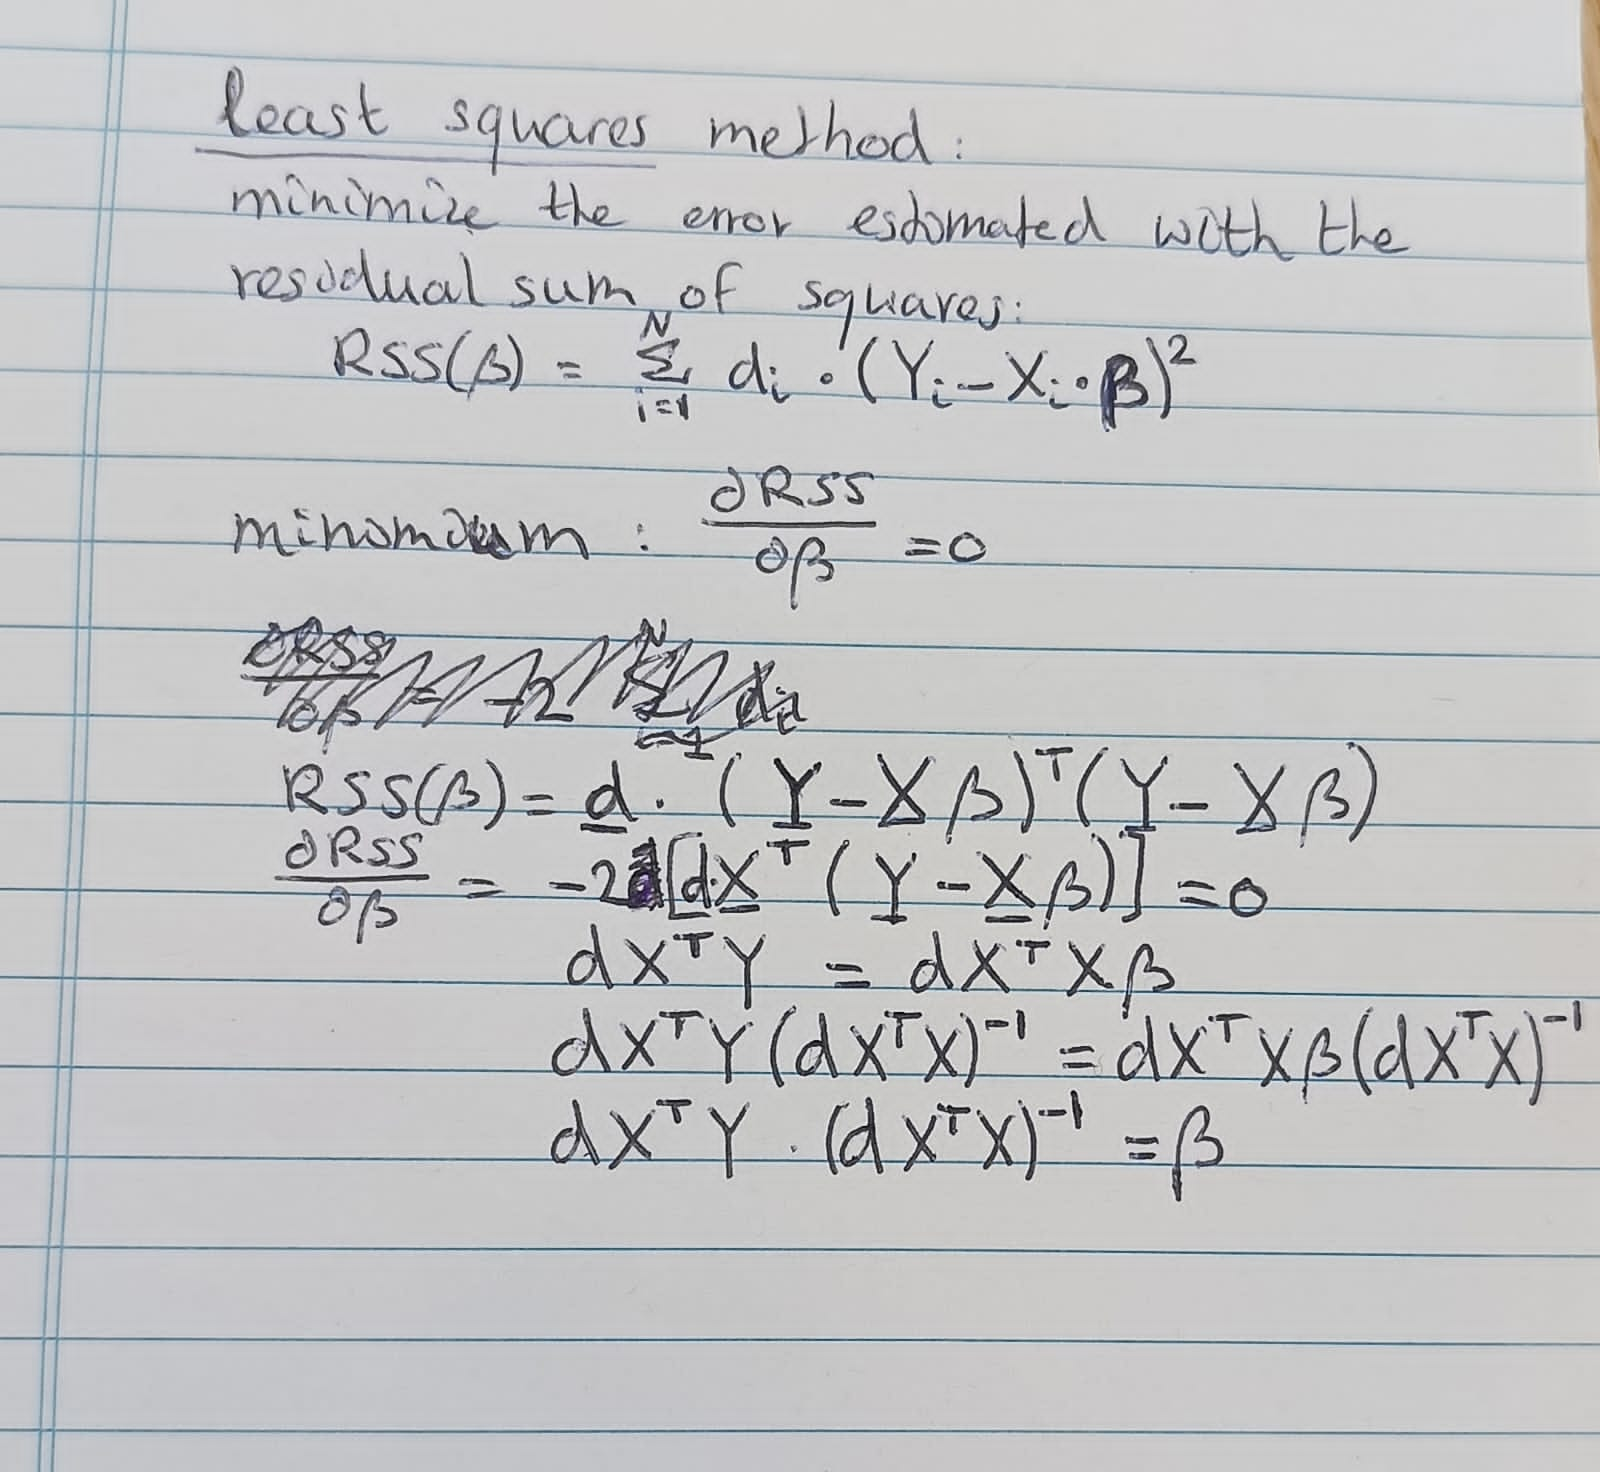 least squares method:
minimize the error estimated with the
residual sum of squares:
RSS(β) = Σ_{i=1}^{N} d_i · (Y_i − X_i · β)²
minimum : ∂RSS/∂β = 0
RSS(β) = d · (Y − Xβ)ᵀ(Y − Xβ)
∂RSS/∂β = −2[d·Xᵀ(Y − Xβ)] = 0
dXᵀY = dXᵀXβ
dXᵀY(dXᵀX)⁻¹ = dXᵀXβ(dXᵀX)⁻¹
dXᵀY · (dXᵀX)⁻¹ = β